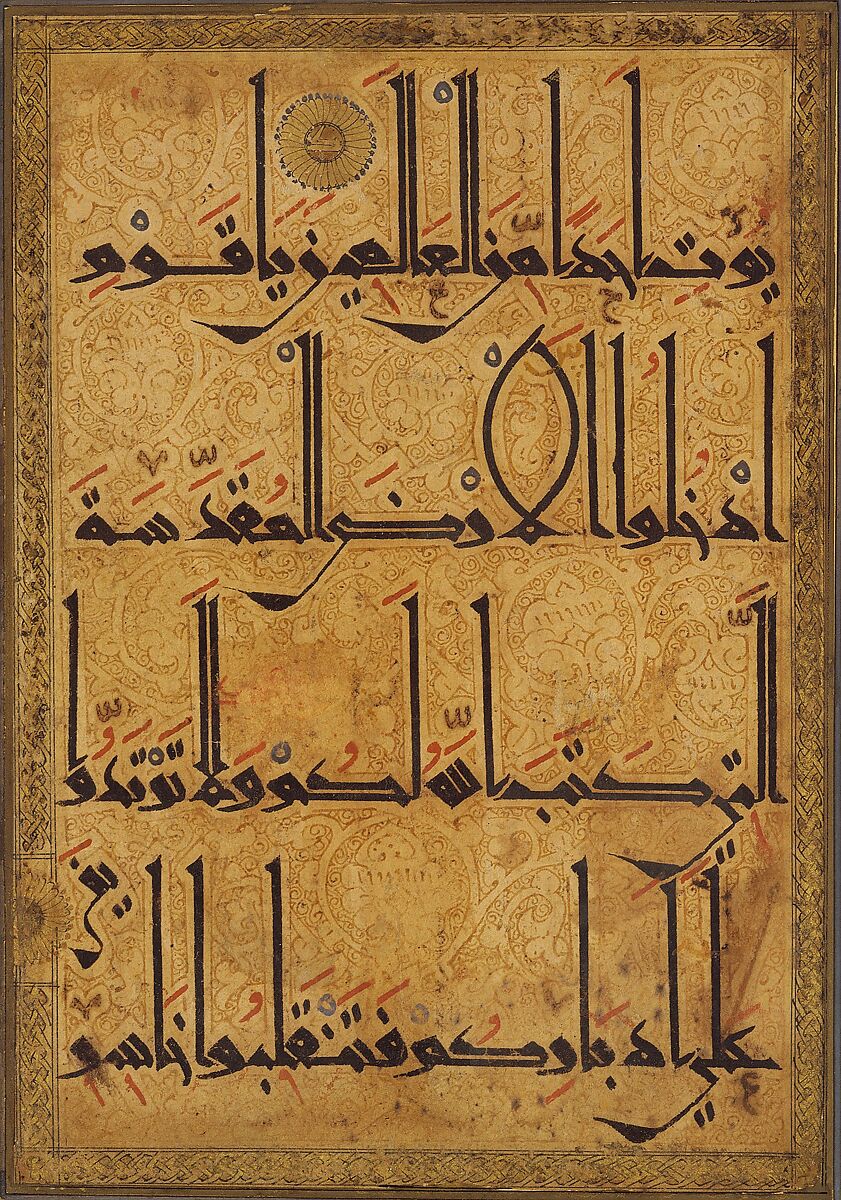 يُؤْتِ اَحَدًا مِنَ الْعَالَمِينَ يَا قَوْمِ
ادْخُلُوا الْاَرْضَ الْمُقَدَّسَةَ
الَّتِي كَتَبَ اللَّهُ لَكُمْ وَلَا تَرْتَدُّوا
عَلَى اَدْبَارِكُمْ فَتَنْقَلِبُوا خَاسِرِينَ